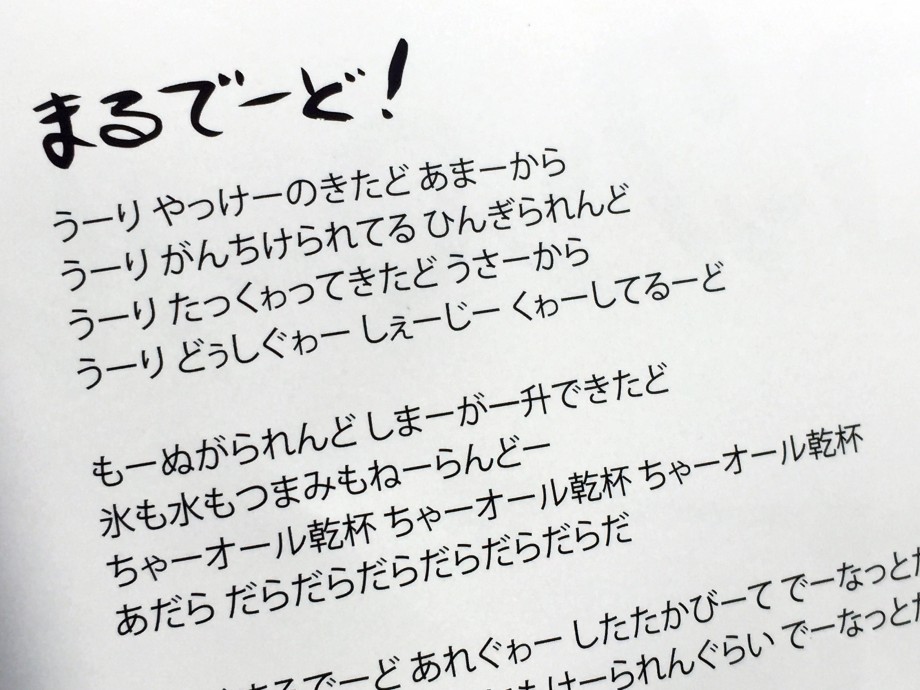 まるでーど!
うーり やっけーのきたど あまーから
うーり がんちけられてる ひんぎられんど
うーり たっくゎってきたど うさーから
うーり どぅしぐゎー しぇーじー くゎーしてるーど
もーぬがられんど しまーが一升できたど
氷も水もつまみもねーらんどー
ちゃーオール乾杯 ちゃーオール乾杯 ちゃーオール乾杯
あだら だらだらだらだらだらだらだ
まるでーど あれぐゎー したたかびーて でーなっとだ
けーられんぐらい でーなっとだ